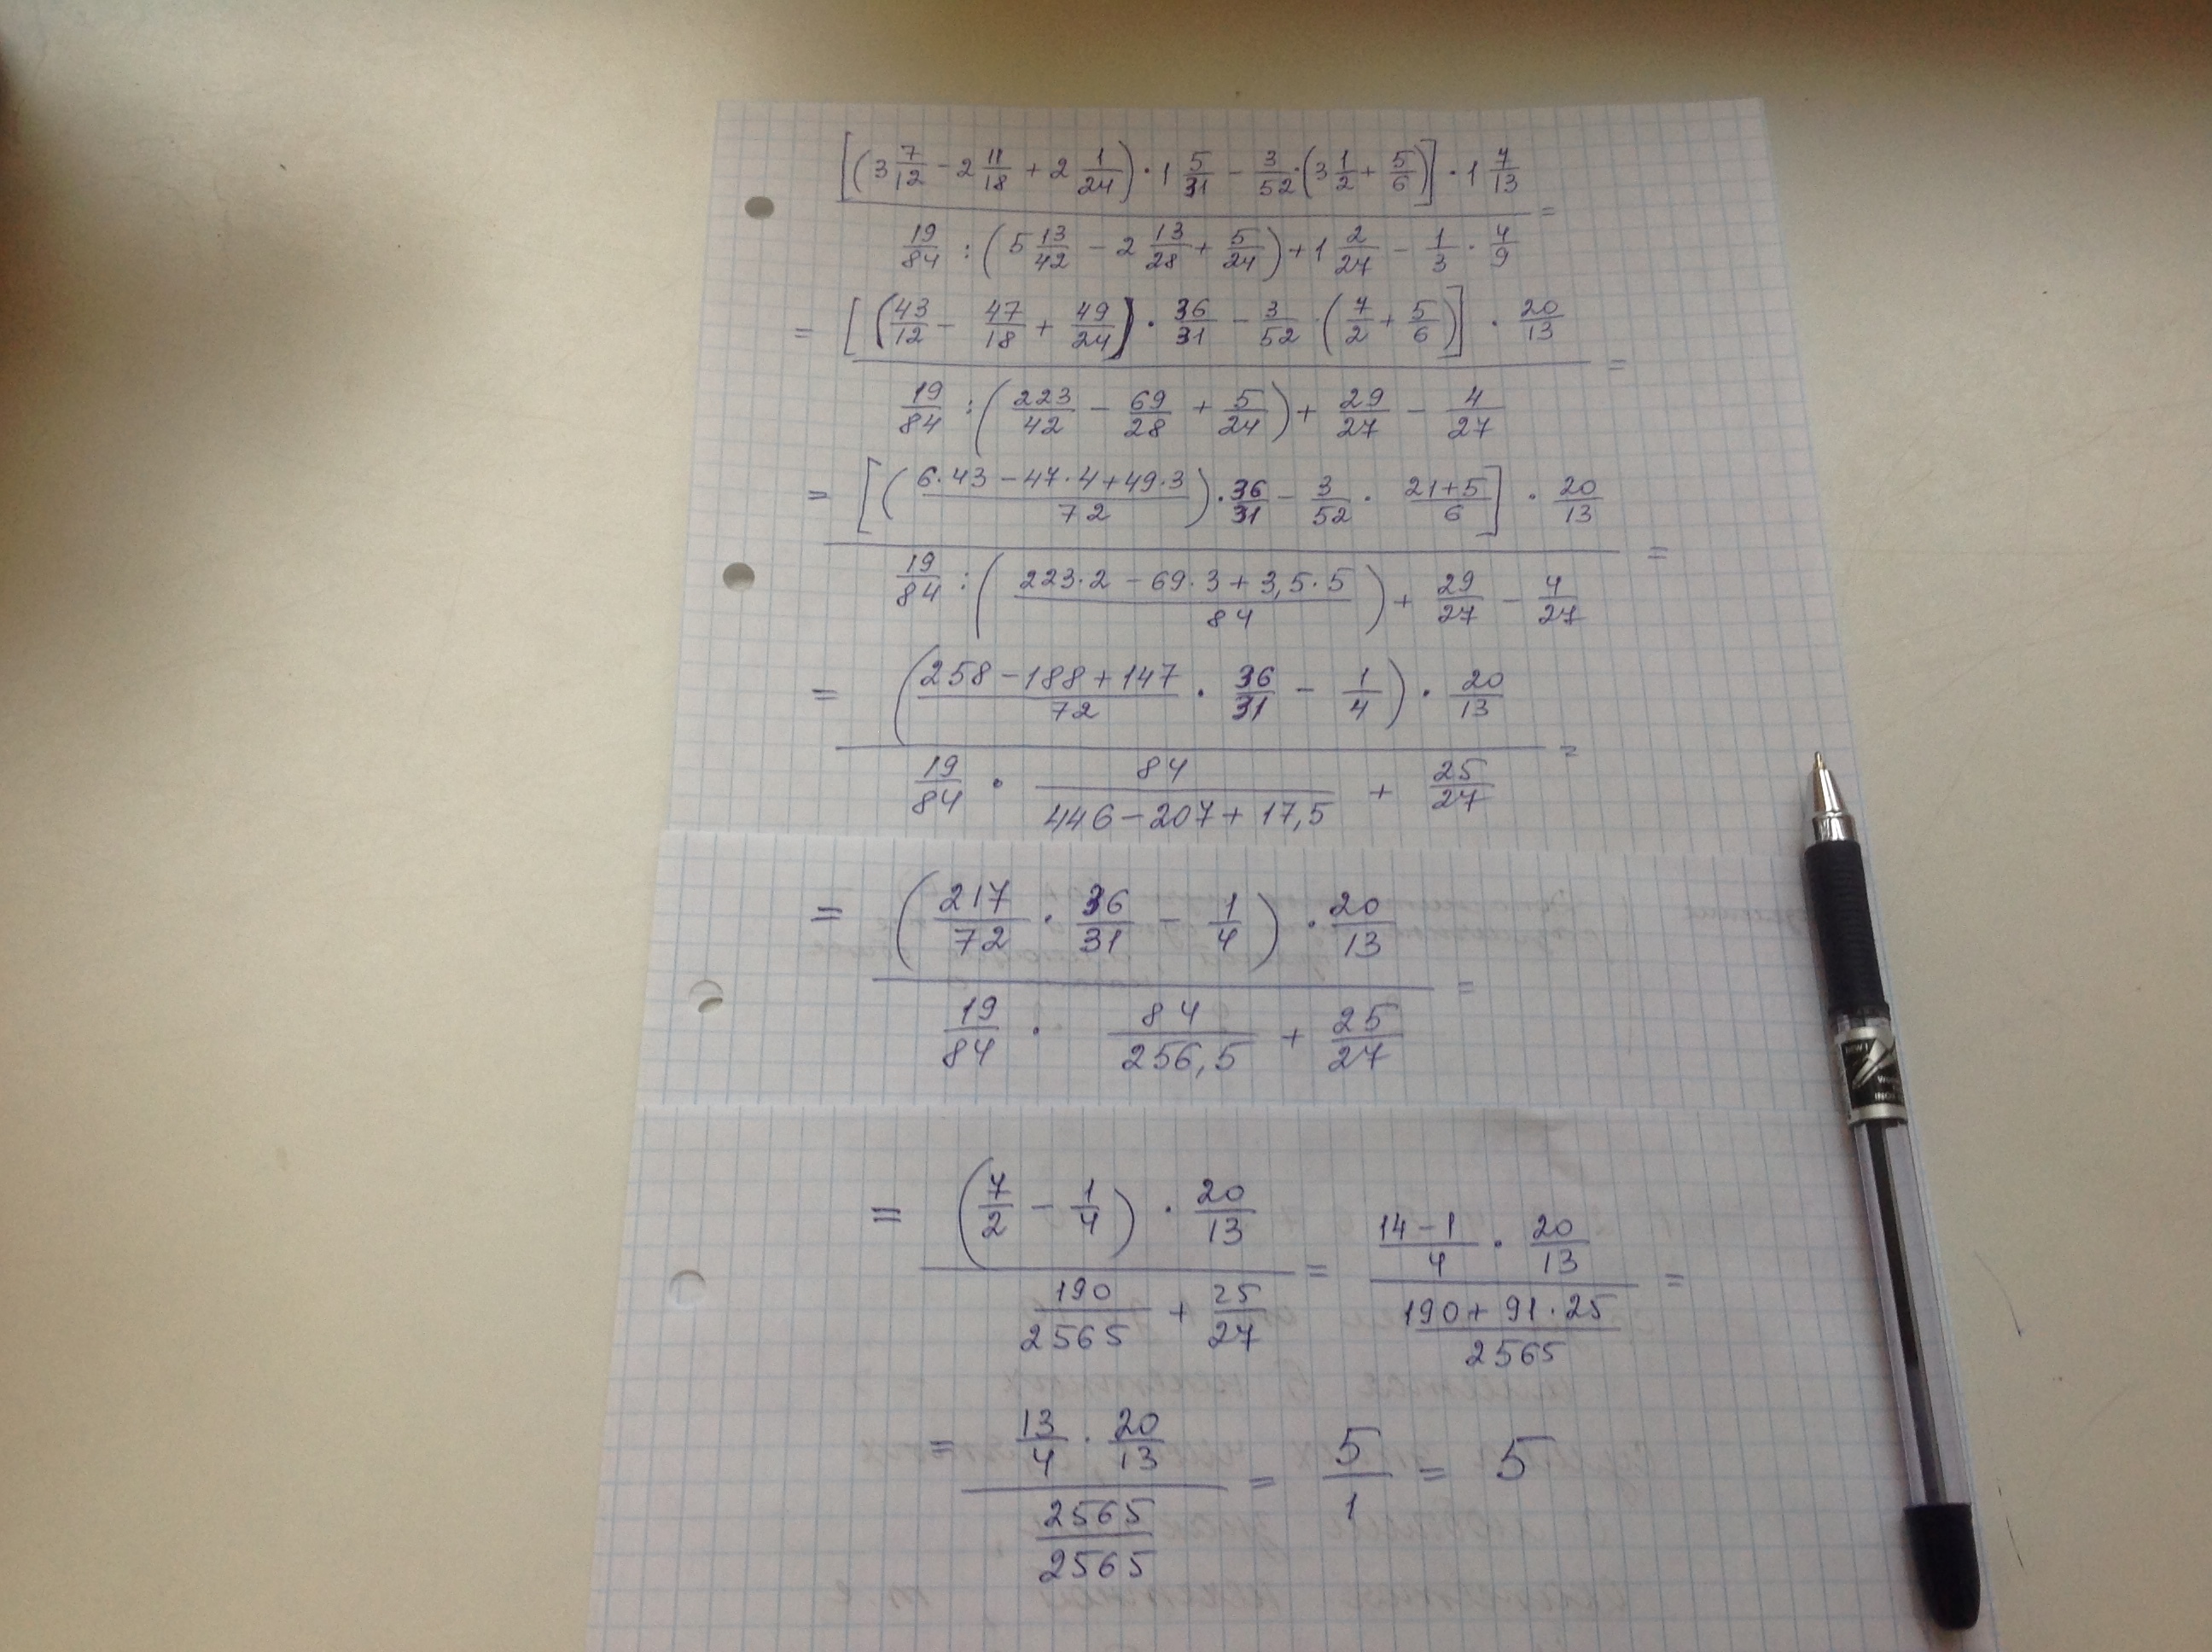 [(3 7/12 − 2 11/18 + 2 1/24) · 1 5/31 − 3/52 · (3 1/2 + 5/6)] · 1 7/13
19/84 : (5 13/42 − 2 13/28 + 5/24) + 1 2/27 − 1/3 · 4/9 =
= [(43/12 − 47/18 + 49/24) · 36/31 − 3/52 · (7/2 + 5/6)] · 20/13
19/84 : (223/42 − 69/28 + 5/24) + 29/27 − 4/27 =
= [((6·43 − 47·4 + 49·3)/72) · 36/31 − 3/52 · (21+5)/6] · 20/13
19/84 : ((223·2 − 69·3 + 3,5·5)/84) + 29/27 − 4/27 =
= ((258 − 188 + 147)/72 · 36/31 − 1/4) · 20/13
19/84 · 84/(446 − 207 + 17,5) + 25/27 =
= (217/72 · 36/31 − 1/4) · 20/13
19/84 · 84/256,5 + 25/27 =
= (7/2 − 1/4) · 20/13
190/2565 + 25/27 =
(14 − 1)/4 · 20/13
(190 + 91·25)/2565 =
= 13/4 · 20/13
2565/2565 = 5/1 = 5